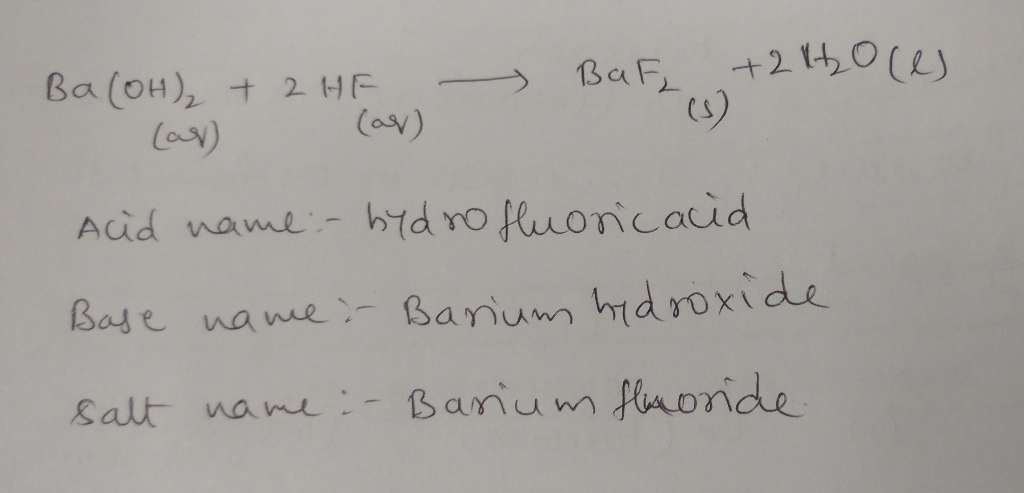 Ba(OH)₂ + 2 HF ⟶ BaF₂ + 2 H₂O (l)
(aq) (aq) (s)
Acid name:- hydrofluoric acid
Base name:- Barium hydroxide
Salt name:- Barium fluoride.